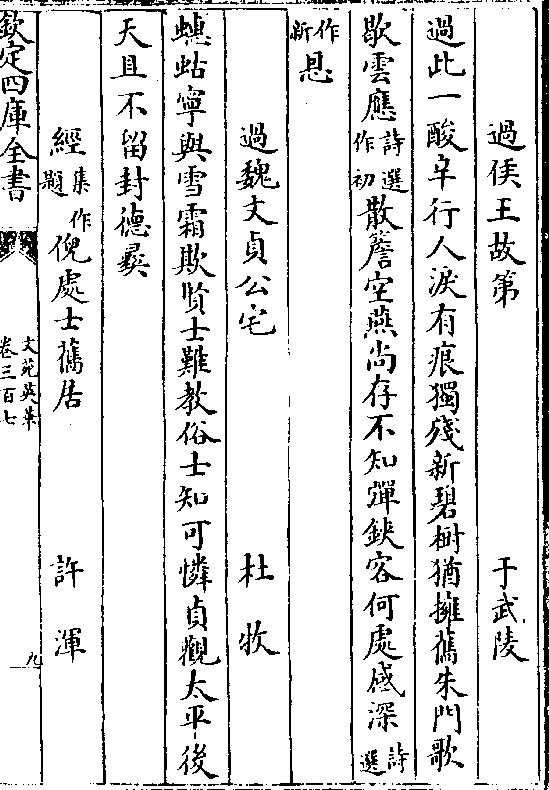 過侯王故第 于武陵
過此一酸辛行人淚有痕獨殘新碧樹猶擁舊朱門歌
歇雲應詩選作初散簷空燕尚存不知彈鋏客何處感深詩選
作新恩
過魏文貞公宅 杜牧
蟪蛄寧與雪霜欺賢士難教俗士知可憐貞觀太平後
天且不留封德彛
經集作題倪處士舊居 許渾
欽定四庫全書
文苑英華
卷三百七
九